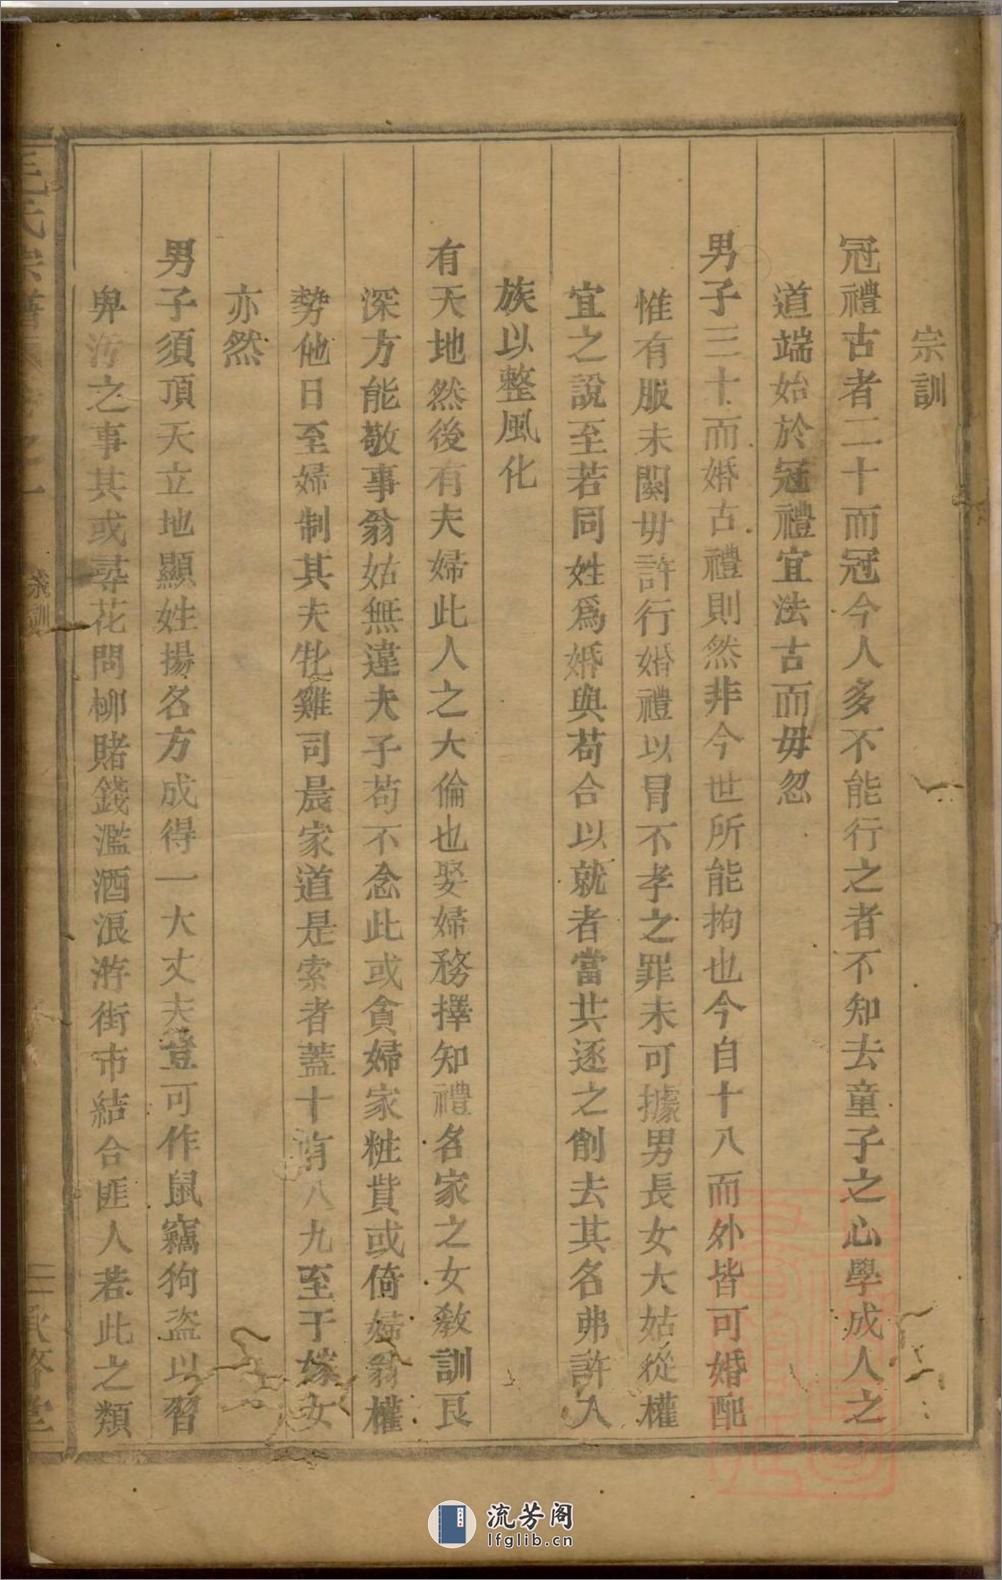 宗訓
冠禮古者二十而冠今人多不能行之者不知去童子之心學成人之
道端始於冠禮宜法古而毋忽
男子三十而婚古禮則然非今世所能拘也今自十八而外皆可婚配
惟有服未闋毋許行婚禮以冒不孝之罪未可據男長女大姑從權
宜之說至若同姓爲婚與苟合以就者當共逐之削去其名弗許入
族以整風化
有天地然後有夫婦此人之大倫也娶婦務擇知禮名家之女教訓良
深方能敬事翁姑無違夫子苟不念此或貪婦家粧貲或倚婦翁權
勢他日至婦制其夫牝雞司晨家道是索者蓋十有八九至于嫁女
亦然
男子須頂天立地顯姓揚名方成得一大丈夫豈可作鼠竊狗盜以習
卑汚之事其或尋花問柳賭錢濫酒浪游街市結合匪人若此之類
毛氏宗譜 之一
宗訓
二 承啓堂
流芳阁
lfglib.cn